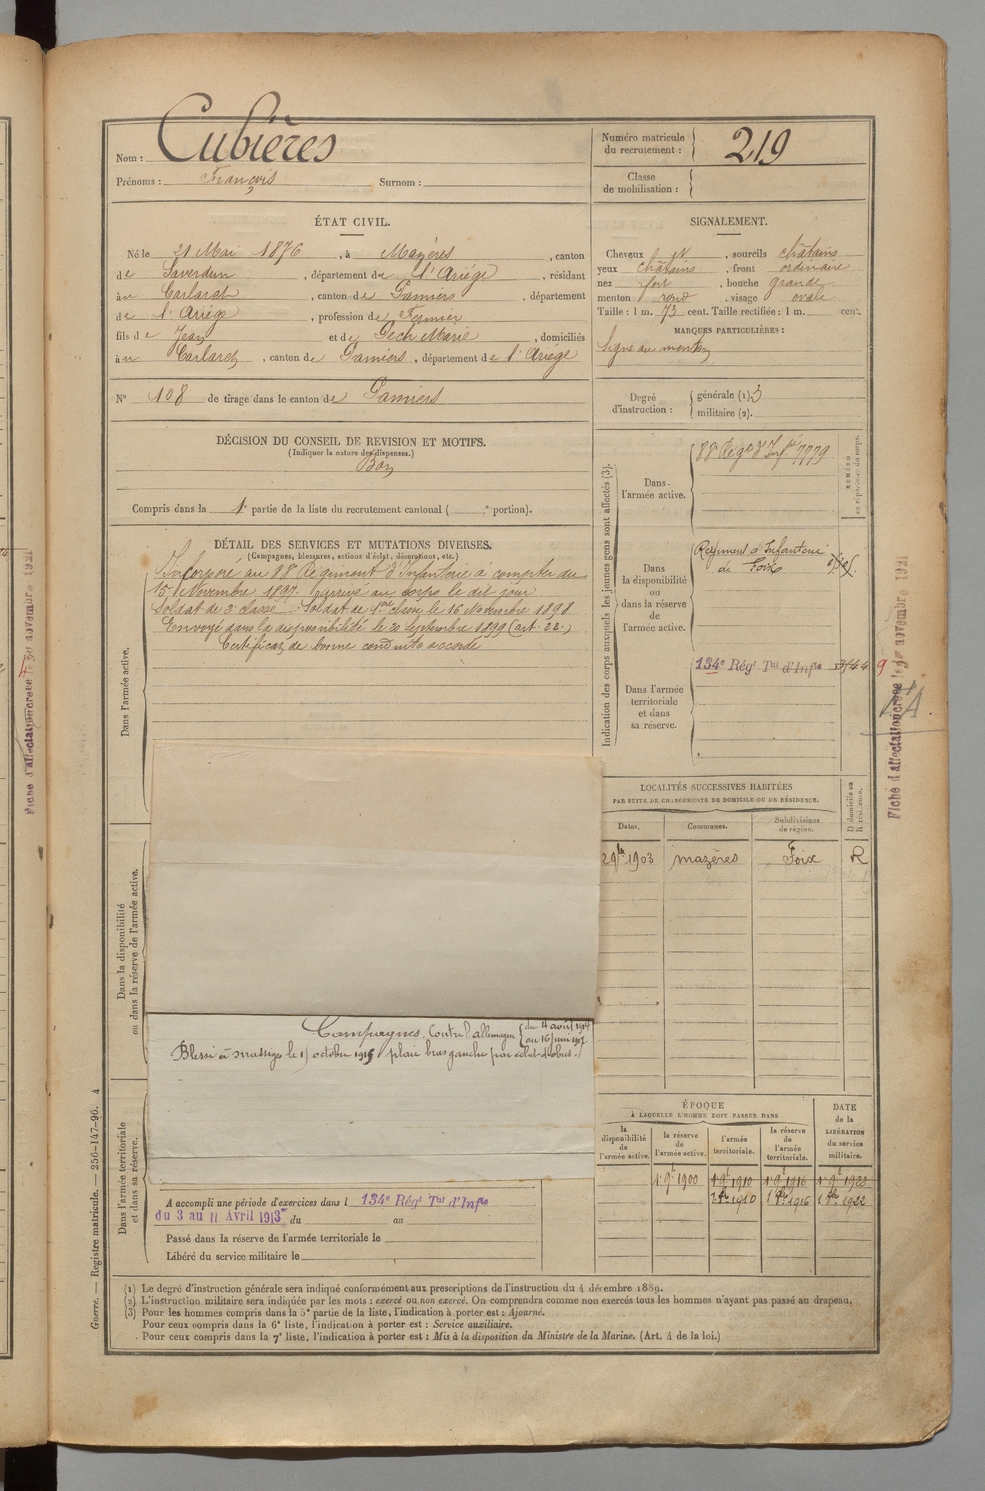 Nom : Cubières
Prénoms : François Surnom :
Numéro matricule du recrutement : 219
Classe de mobilisation :
ÉTAT CIVIL.
Né le 21 Mai 1876, à Mazères, canton
de Saverdun, département de l'Ariége, résidant
à Carlaret, canton de Pamiers, département
de l'Ariége, profession de Fermier
fils de Jean et de Pech Marie, domiciliés
à Carlaret, canton de Pamiers, département de l'Ariége
N° 108 de tirage dans le canton de Pamiers
SIGNALEMENT.
Cheveux et, sourcils châtains
yeux châtains, front ordinaire
nez fort, bouche grande
menton rond, visage ovale
Taille : 1 m. 73 cent. Taille rectifiée : 1 m. cent.
MARQUES PARTICULIÈRES :
signe au menton
Degré d'instruction : générale (1). 3
militaire (2).
DÉCISION DU CONSEIL DE REVISION ET MOTIFS.
(Indiquer la nature des dispenses.)
Bon
Compris dans la 1e partie de la liste du recrutement cantonal ( e portion).
DÉTAIL DES SERVICES ET MUTATIONS DIVERSES.
(Campagnes, blessures, actions d'éclat, décorations, etc.)
Dans l'armée active.
Incorporé au 88e Régiment d'Infanterie à compter du
15 Novembre 1897. Arrivé au corps le dit jour
Soldat de 2e classe. Soldat de 1ère classe le 16 Novembre 1898
Envoyé dans la disponibilité le 20 Septembre 1899 (art. 22.)
Certificat de bonne conduite accordé
Dans la disponibilité ou dans la réserve de l'armée active.
Campagnes. Contre l'allemagne du 4 août 1914
au 16 juin 191
Blessé à massiges le octobre 1915 plaie bras gauche par éclat d'obus.
Dans l'armée territoriale et dans sa réserve.
A accompli une période d'exercices dans l 134e Régt Tal d'Infie
du 3 au 11 Avril 1913 du au
Passé dans la réserve de l'armée territoriale le
Libéré du service militaire le
Indication des corps auxquels les jeunes gens sont affectés (3).
NUMÉRO au répertoire du corps.
Dans l'armée active.
88e Régt d'Infie 7779
Dans la disponibilité ou dans la réserve de l'armée active.
Régiment d'Infanterie
de Foix
Dans l'armée territoriale et dans sa réserve.
134e Régt Tal d'Infie
LOCALITÉS SUCCESSIVES HABITÉES
PAR SUITE DE CHANGEMENTS DE DOMICILE OU DE RÉSIDENCE.
Dates. Communes. Subdivisions de région. D domicile ou R résidence.
1903 mazères Foix R
ÉPOQUE
À LAQUELLE L'HOMME DOIT PASSER DANS
la disponibilité de l'armée active. la réserve de l'armée active. l'armée territoriale. la réserve de l'armée territoriale.
DATE de la LIBÉRATION du service militaire.
1900 1910 1916 1922
1910 1916 1922
(1) Le degré d'instruction générale sera indiqué conformément aux prescriptions de l'instruction du 4 décembre 1889.
(2) L'instruction militaire sera indiquée par les mots : exercé ou non exercé. On comprendra comme non exercés tous les hommes n'ayant pas passé au drapeau.
(3) Pour les hommes compris dans la 5e partie de la liste, l'indication à porter est : Ajourné.
Pour ceux compris dans la 6e liste, l'indication à porter est : Service auxiliaire.
Pour ceux compris dans la 7e liste, l'indication à porter est : Mis à la disposition du Ministre de la Marine. (Art. 4 de la loi.)
Guerre. — Registre matricule. — 256-147-96. 4
Fiche d'affectation créée le novembre 1921
Fiche d'affectation créée le 30 novembre 1921